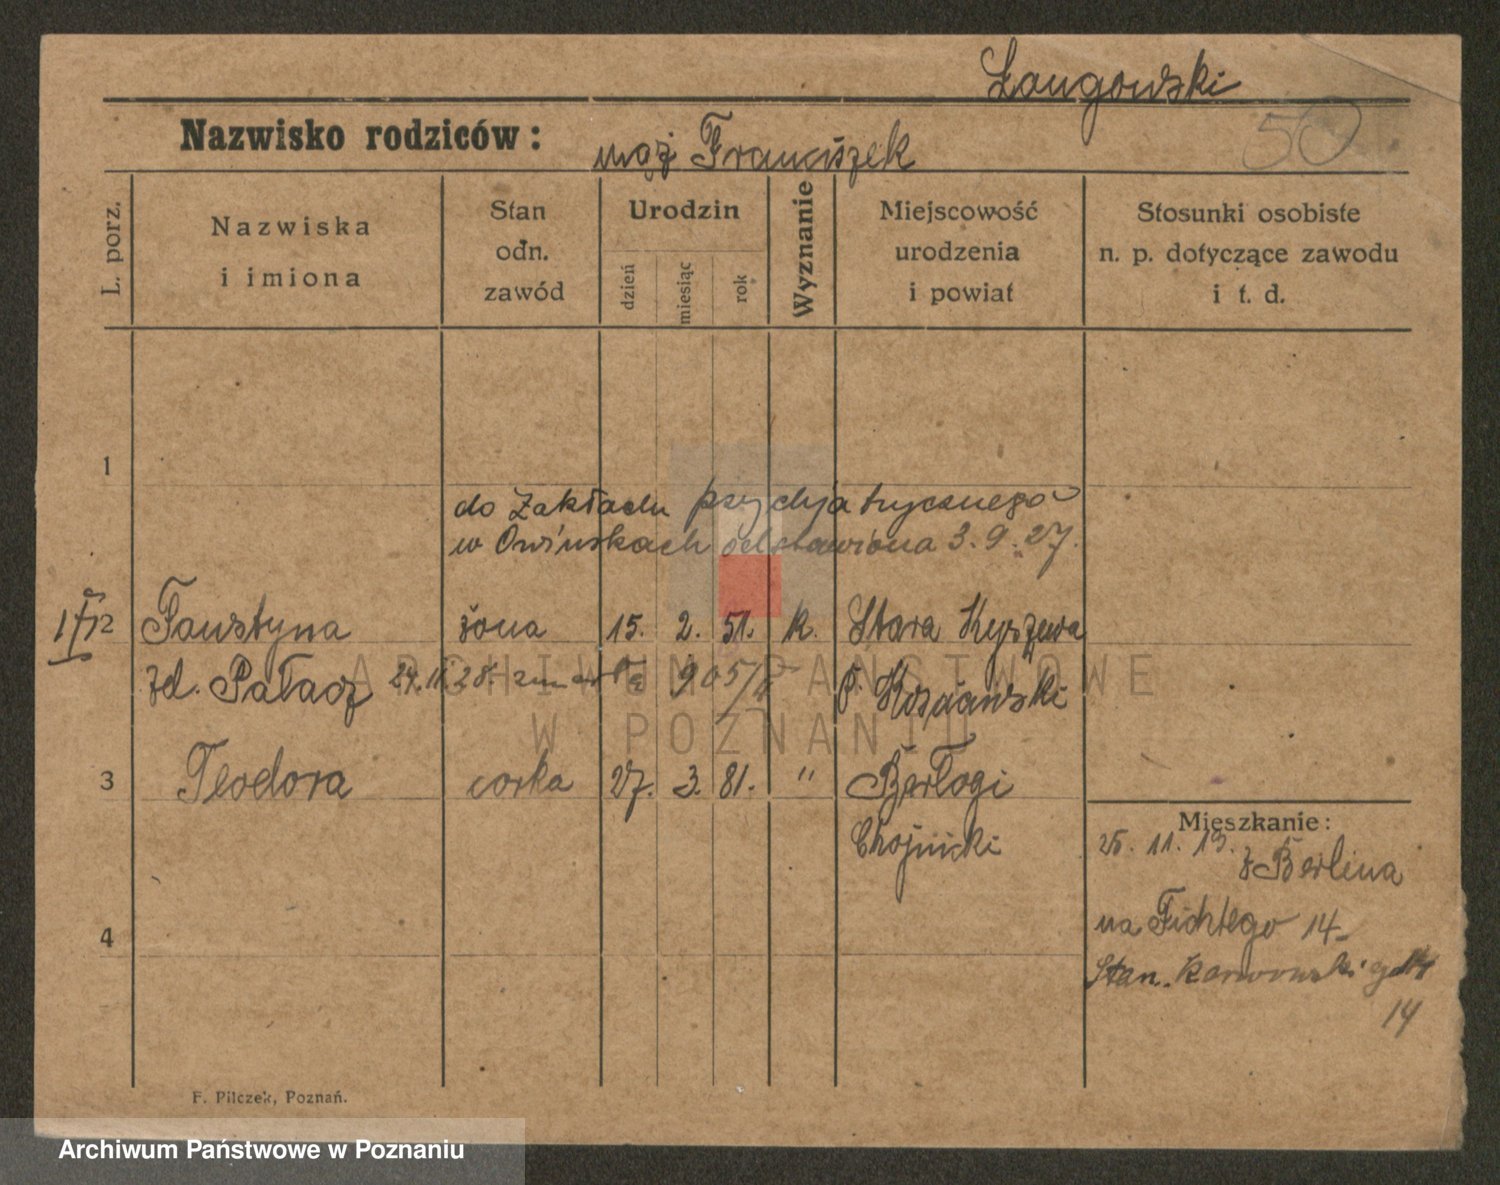 Langowski
Nazwisko rodziców: mąż Franciszek
50
L. porz.
Nazwiska
i imiona
Stan
odn.
zawód
Urodzin
dzień
miesiąc
rok
Wyznanie
Miejscowość
urodzenia
i powiat
Stosunki osobiste
n. p. dotyczące zawodu
i t. d.
1
do Zakładu psychjatrycznego
w Owińskach odstawiona 3.9.27.
2 Faustyna żona 15. 2. 51. k. Stara Kyszewa
zd. Pałacz 24.11.28. zmarła 905/4 p. Kościański
3 Teodora corka 27. 3. 81. " Berłogi
Chojnicki
4
Mieszkanie:
25. 11. 19. z Berlina
na Fichtego 14
Stan. Karwowskiego 14
14
F. Pilczek, Poznań.
ARCHIWUM PAŃSTWOWE
W POZNANIU
Archiwum Państwowe w Poznaniu